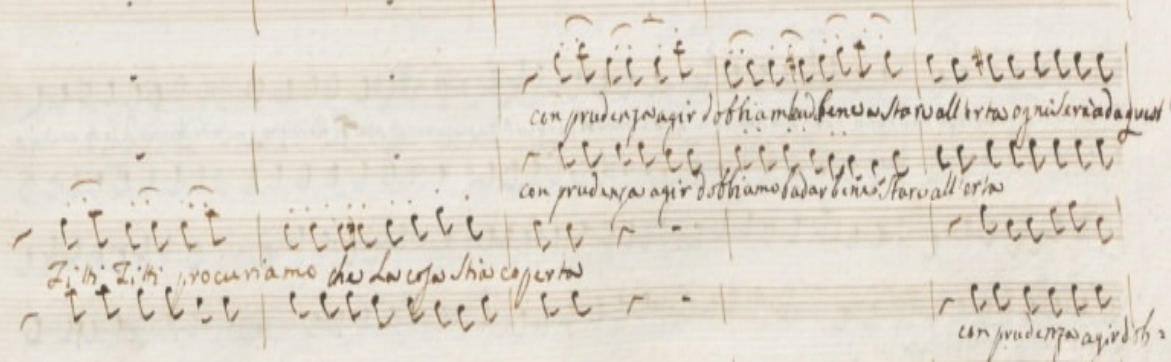 con prudenza agir dobbiam bad bene a Star all'erta ogni sera ad a quest
con prudenza agir dobbiamo badar bene a Star all'erta
Zitti Zitti procuriamo che La cosa Stia coperta
con prudenza agir dob=